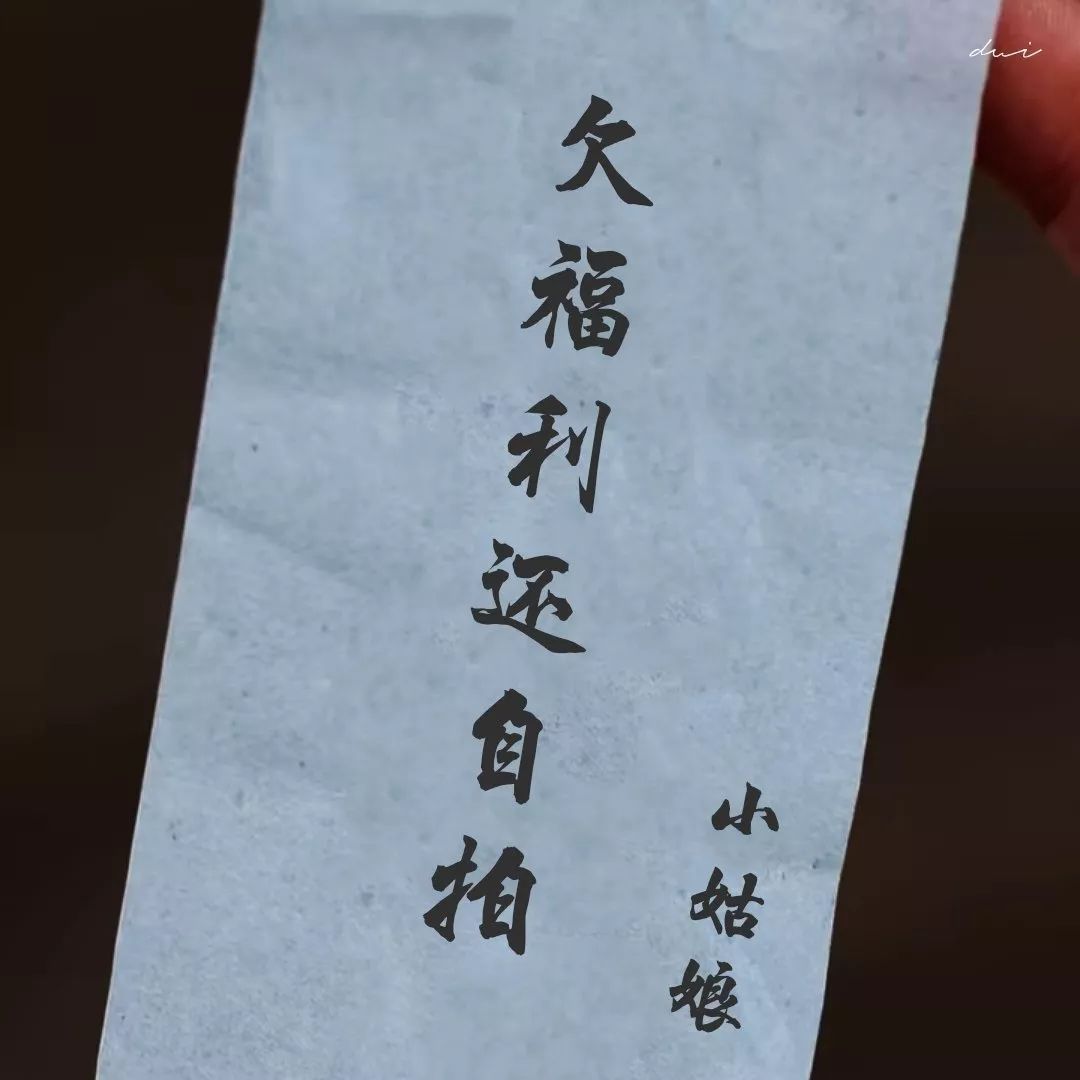 dui
欠福利还自拍
小姑娘